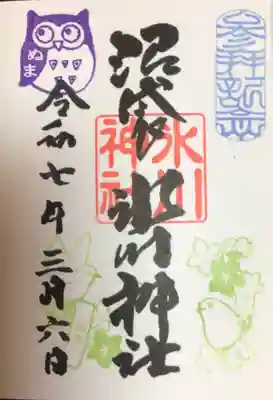 参拝記念
沼袋氷川神社
氷川神社
令和七年三月六日
ぬま